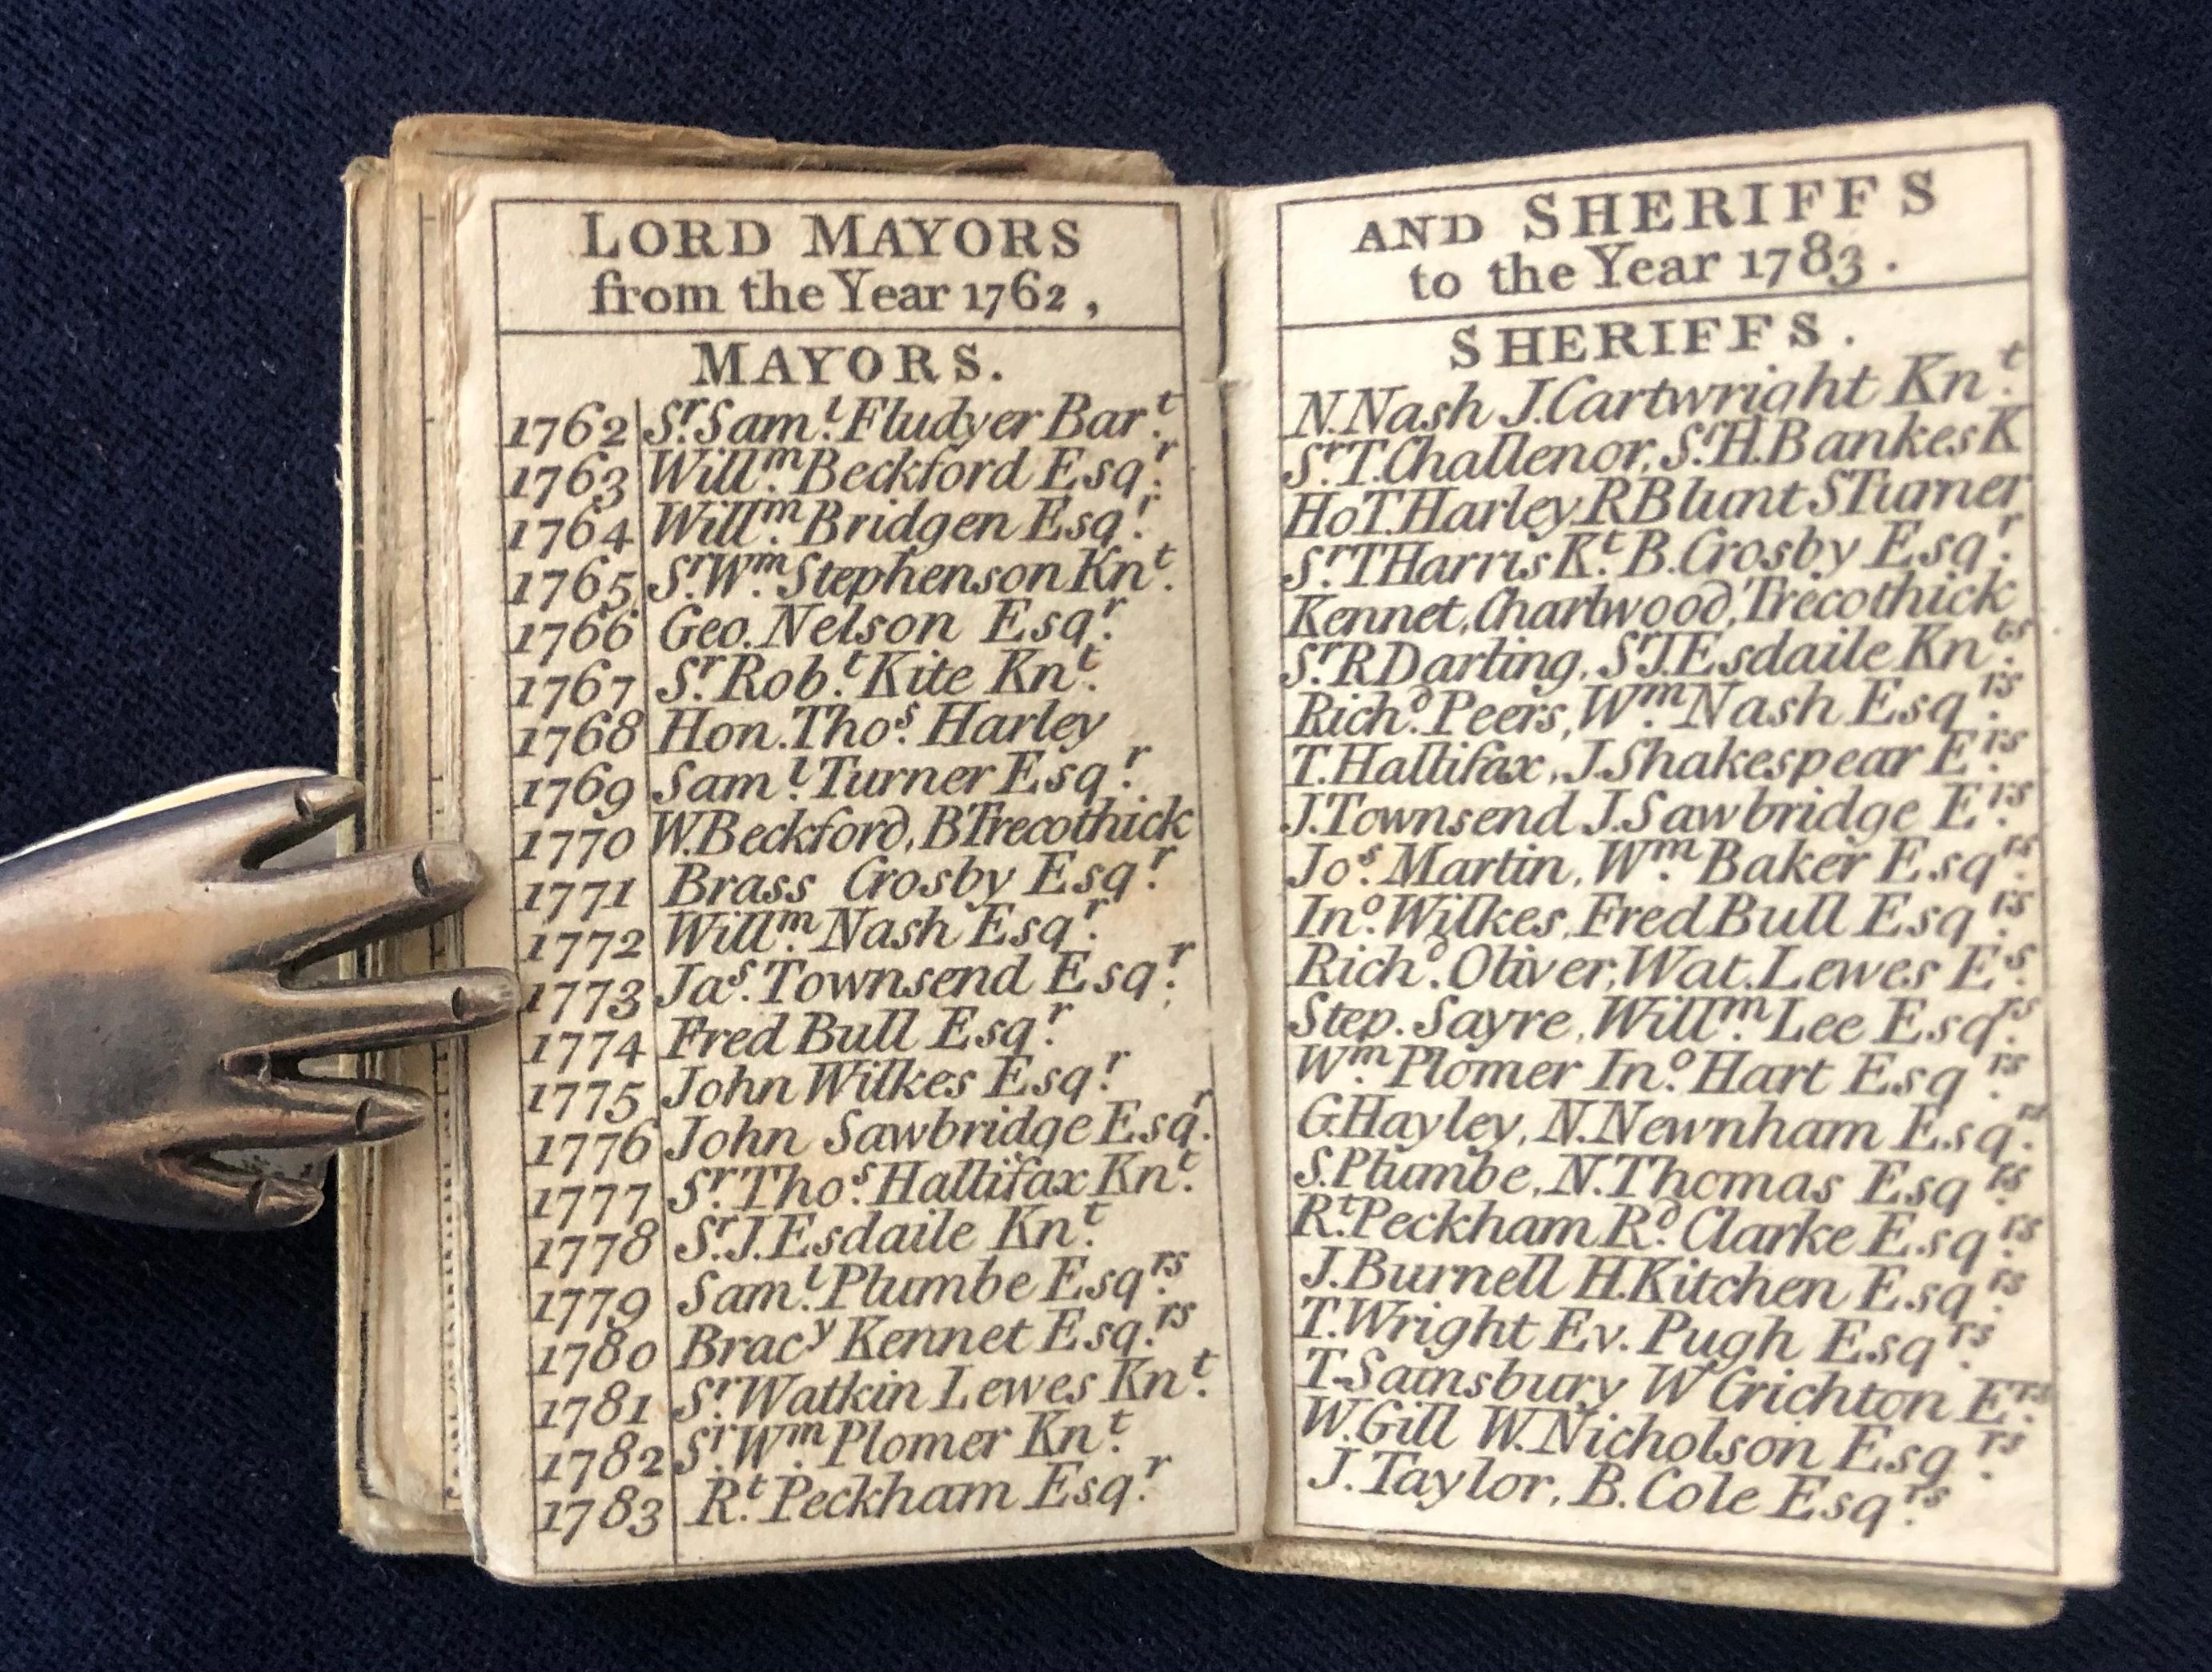 LORD MAYORS
from the Year 1762,
MAYORS.
1762 Sr. Saml. Fludyer Bart.
1763 Willm. Beckford Esqr.
1764 Willm. Bridgen Esqr.
1765 Sr. Wm. Stephenson Knt.
1766 Geo. Nelson Esqr.
1767 Sr. Robt. Kite Knt.
1768 Hon. Thos. Harley
1769 Saml. Turner Esqr.
1770 W. Beckford, B Trecothick
1771 Brass Crosby Esqr.
1772 Willm. Nash Esqr.
1773 Jas. Townsend Esqr.
1774 Fred Bull Esqr.
1775 John Wilkes Esqr.
1776 John Sawbridge Esqr.
1777 Sr. Thos. Hallifax Knt.
1778 Sr. J. Esdaile Knt.
1779 Saml. Plumbe Esqrs.
1780 Bracy Kennet Esqrs.
1781 Sr. Watkin Lewes Knt.
1782 Sr. Wm. Plomer Knt.
1783 Rt. Peckham Esqr.
AND SHERIFFS
to the Year 1783.
SHERIFFS.
N. Nash J. Cartwright Knt.
Sr. T. Challenor, Sr. H. Bankes K
Ho T. Harley R Blunt S Turner
Sr. T Harris Kt. B. Crosby Esqr.
Kennet, Charlwood, Trecothick
Sr. R Darling, Sr. J. Esdaile Knts.
Richd. Peers, Wm. Nash Esqrs.
T. Hallifax, J. Shakespear Ers.
J. Townsend J. Sawbridge Ers.
Jos. Martin, Wm. Baker Esqrs.
Ino. Wilkes, Fred Bull Esqrs.
Richd. Oliver, Wat. Lewes Es.
Step. Sayre, Willm. Lee Esqrs.
Wm. Plomer Ino. Hart Esqrs.
G. Hayley, N. Newnham Esqrs.
S. Plumbe, N. Thomas Esqrs.
Rt. Peckham Rd. Clarke Esqrs.
J. Burnell H. Kitchen Esqrs.
T. Wright Ev. Pugh Esqrs.
T. Sainsbury W Crichton Ers.
W. Gill W. Nicholson Esqrs.
J. Taylor, B. Cole Esqrs.